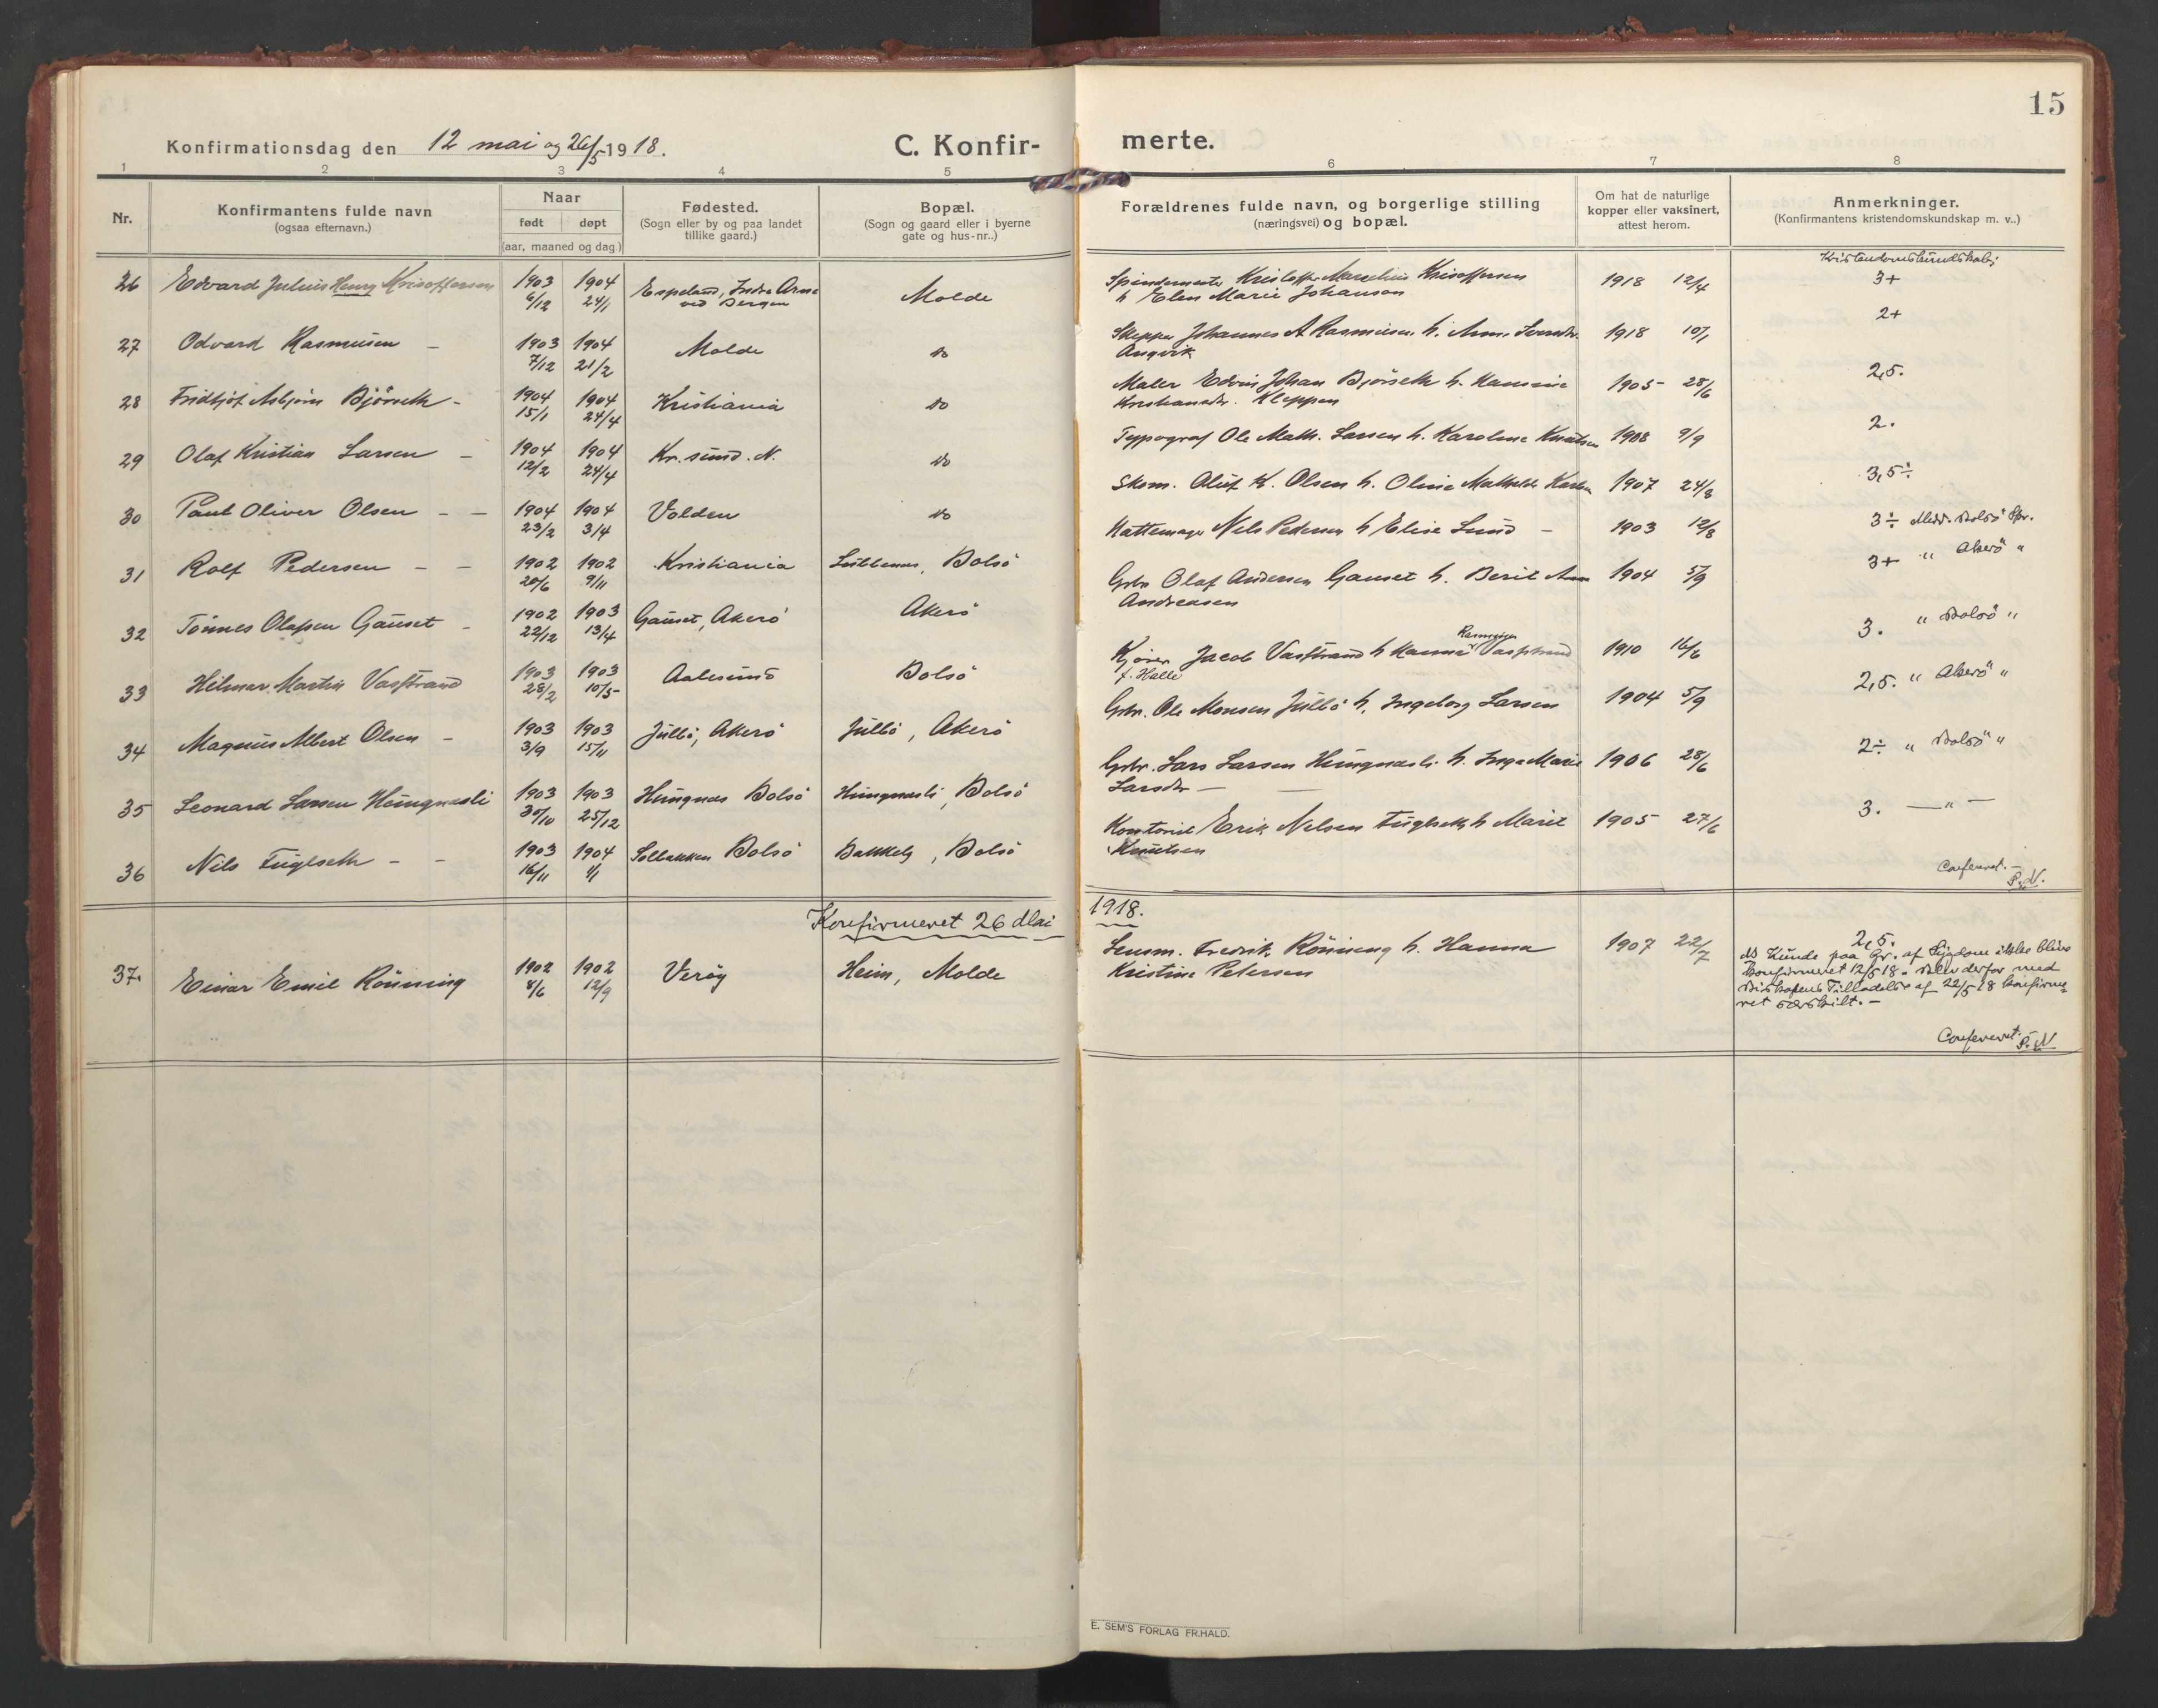 15
Konfirmationsdag den 12 mai og 26/5 1918.
C. Konfir-
merte.
1 2 3 4 5 6 7 8
Nr.
Konfirmantens fulde navn
(ogsaa efternavn.)
Naar
født døpt
(aar, maaned og dag)
Fødested.
(Sogn eller by og paa landet
tillike gaard.)
Bopæl.
(Sogn og gaard eller i byerne
gate og hus-nr..)
Forældrenes fulde navn, og borgerlige stilling
(næringsvei) og bopæl.
Om hat de naturlige
kopper eller vaksinert,
attest herom.
Anmerkninger.
(Konfirmantens kristendomskundskap m. v..)
Kristendomskundskab;
26 Edvard Julius Henry Krisoffersen 1903 1904 Espeland, Indre Arne Molde Kristoffer Marselius Krisoffersen 1918 12/4 3+
6/12 24/1 ved Bergen h Elen Marie Johanson
27 Odvard Rasmusen – 1903 1904 Molde do Skipper Johannes A Rasmusen h. 1918 10/1 2+
7/12 21/2 Angvik
28 Fridtjof Asbjørn Bjørseth - 1904 1904 Kristiania do Maler Edvin Johan Bjørseth h. Hansine 1905 28/6 2,5.
15/1 24/4 Kristiansdr. Kleppen
29 Olaf Kristian Larsen – 1904 1904 Kr.sund. N. do Typograf Ole Math. Larsen h. Karoline Knutsen 1908 9/9 2.
12/2 24/4
30 Paul Oliver Olsen – – 1904 1904 Volden do Skom. Oluf K. Olsen h. Oline Mathilde 1907 24/8 3,5÷
23/2 3/4
31 Rolf Pedersen – – 1902 1902 Kristiania Bolsö Hattemager Nels Pedersen h Elise Lund – 1903 12/8 3÷ Medd. Bolsö Spr.
20/6 9/11
32 Tönnes Olafsen Gauset – 1902 1903 Gauset, Akerö Akerö Gbr Olaf Andersen Gauset h. Berit Ann 1904 5/9 3+ " Akerö "
22/12 13/4 Andreasen
33 Hilmar Martin Vasstrand 1903 1903 Aalesund Bolsö Kjører Jacob Vasstrand h Hanna Rasmusen Vasstrand 1910 16/6 3. " Bolsö "
28/2 10/5 f. Halle
34 Magnus Albert Olsen – 1903 1903 Julbö, Akerö Julbö, Akerö Gbr. Ole Monsen Julbö h. Ingeborg Larsen 1904 5/9 2,5. " Akerö "
3/9 15/11
35 Leonard Larsen Höugnæsli 1903 1903 Höugnæs Bolsö Höugnæsli, Bolsö Gbr. Lars Larsen Höugnæsli h. Inga Marie 1906 28/6 2÷ " Bolsö "
30/10 25/12 Larsdr –
36 Nils Fuglseth – – 1903 1904 Solbakken Bolsö Bakkely, Bolsö Kontorist Erik Nilsen Fuglseth h Marit 1905 27/6 3. — " —
16/11 1/1 Knutsen
Confereret. –
P. N.
Konfirmeret 26 Mai
1918.
37. Einar Emil Rönning 1902 1902 Verøy Heim, Molde Lensm. Fredrik Rönning h. Hanna 1907 22/7 2,5.
8/6 12/9 Kristine Petersen
NB Kunde paa Gr. af Sygdom ikke blive
konfirmeret 12/5 18. Blev derfor med
Biskopens Tilladelse af 22/5 18 konfirme-
ret særskilt. –
Confereret.
P. N
E. SEM'S FORLAG FR.HALD.